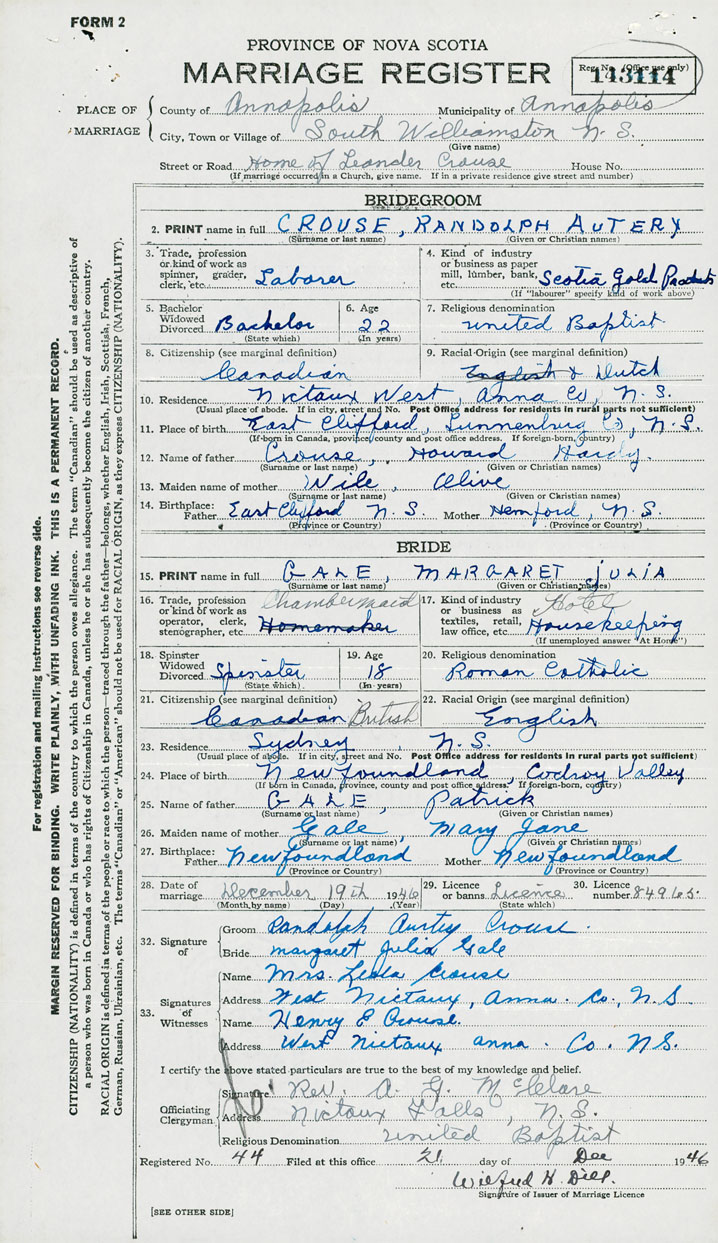 FORM 2
PROVINCE OF NOVA SCOTIA
MARRIAGE REGISTER
Reg. No. (Office use only)
143114
PLACE OF MARRIAGE
County of Annapolis Municipality of Annapolis
City, Town or Village of South Williamston N. S.
(Give name)
Street or Road Home of Leander Crouse House No.
(If marriage occurred in a Church, give name. If in a private residence give street and number)
BRIDEGROOM
2. PRINT name in full CROUSE, RANDOLPH AUTERY
(Surname or last name) (Given or Christian names)
3. Trade, profession or kind of work as spinner, grader, clerk, etc. Laborer
4. Kind of industry or business as paper mill, lumber, bank, etc. Scotia Gold Products
(If "labourer" specify kind of work above)
5. Bachelor Widowed Divorced Bachelor
(State which)
6. Age 22
(In years)
7. Religious denomination
United Baptist
8. Citizenship (see marginal definition)
Canadian
9. Racial Origin (see marginal definition)
English & Dutch
10. Residence Nictaux West, Anna Co, N. S.
(Usual place of abode. If in city, street and No. Post Office address for residents in rural parts not sufficient)
11. Place of birth East Clifford, Lunnenburg Co, N. S.
(If born in Canada, province, county and post office address. If foreign-born, country)
12. Name of father Crouse, Howard Hardy
(Surname or last name) (Given or Christian names)
13. Maiden name of mother Wile, Olive
(Surname or last name) (Given or Christian names)
14. Birthplace:
Father East Clifford N. S. Mother Hemford, N. S.
(Province or Country) (Province or Country)
BRIDE
15. PRINT name in full GALE, MARGARET JULIA
(Surname or last name) (Given or Christian names)
16. Trade, profession or kind of work as operator, clerk, stenographer, etc. Chambermaid Homemaker
17. Kind of industry or business as textiles, retail, law office, etc. Hotel Housekeeping
(If unemployed answer "At Home")
18. Spinster Widowed Divorced Spinster
(State which)
19. Age 18
(In years)
20. Religious denomination
Roman Catholic
21. Citizenship (see marginal definition)
Canadian British
22. Racial Origin (see marginal definition)
English
23. Residence Sydney, N. S.
(Usual place of abode. If in city, street and No. Post Office address for residents in rural parts not sufficient)
24. Place of birth Newfoundland, Codroy Valley
(If born in Canada, province, county and post office address. If foreign-born, country)
25. Name of father GALE, Patrick
(Surname or last name) (Given or Christian names)
26. Maiden name of mother Gale, Mary Jane
(Surname or last name) (Given or Christian names)
27. Birthplace:
Father Newfoundland Mother Newfoundland
(Province or Country) (Province or Country)
28. Date of marriage December 19th 1946
(Month by name) (Day) (Year)
29. Licence or banns Licence
(State which)
30. Licence number 84965
32. Signature of
Groom Randolph Autry Crouse
Bride Margaret Julia Gale
33. Signatures of Witnesses
Name Mrs. Leola Crouse
Address West Nictaux, Anna. Co., N. S
Name Henry E Crouse.
Address West Nictaux Anna. Co. N. S.
I certify the above stated particulars are true to the best of my knowledge and belief.
Officiating Clergyman
Signature Rev. A. G. McClare
Address Nictaux Falls, N. S.
Religious Denomination United Baptist
Registered No. 44 Filed at this office 21 day of Dec 1946
Wilfred H. Dill.
Signature of Issuer of Marriage Licence
[SEE OTHER SIDE]
For registration and mailing instructions see reverse side.
MARGIN RESERVED FOR BINDING. WRITE PLAINLY, WITH UNFADING INK. THIS IS A PERMANENT RECORD.
CITIZENSHIP (NATIONALITY) is defined in terms of the country to which the person owes allegiance. The term "Canadian" should be used as descriptive of
a person who was born in Canada or who has rights of Citizenship in Canada, unless he or she has subsequently become the citizen of another country.
RACIAL ORIGIN is defined in terms of the people or race to which the person—traced through the father—belongs, whether English, Irish, Scottish, French,
German, Russian, Ukrainian, etc. The terms "Canadian" or "American" should not be used for RACIAL ORIGIN, as they express CITIZENSHIP (NATIONALITY).